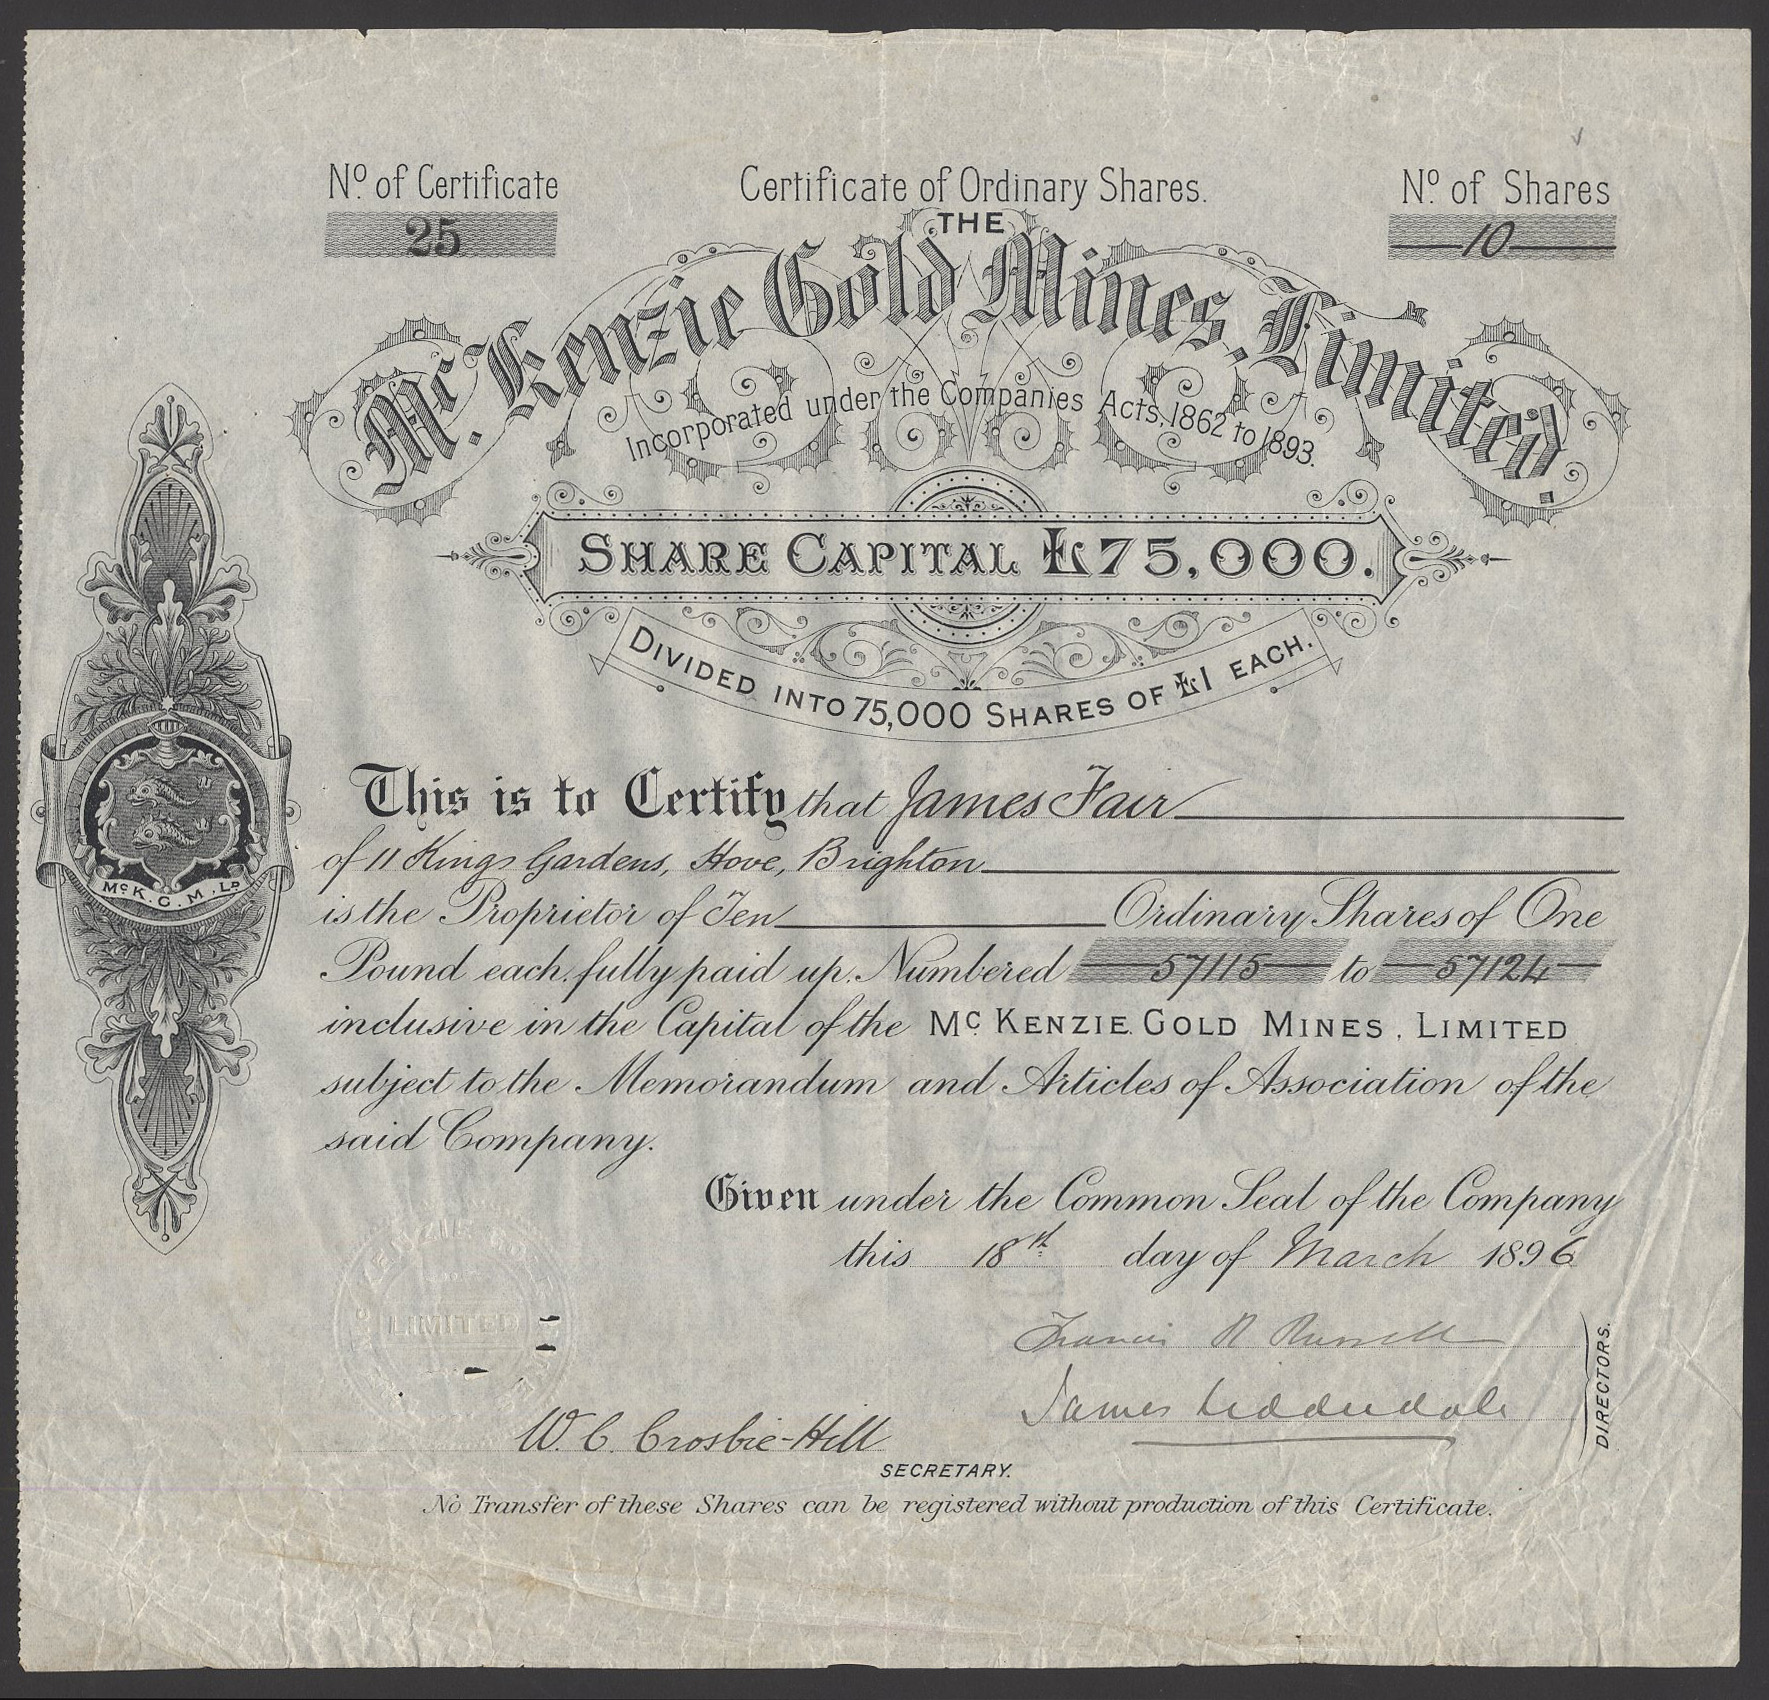 No. of Certificate
25
Certificate of Ordinary Shares.
No. of Shares
10
THE
Mc. Kenzie Gold Mines, Limited.
Incorporated under the Companies Acts, 1862 to 1893.
SHARE CAPITAL £75,000.
DIVIDED INTO 75,000 SHARES OF £1 EACH.
McK.G.M.LD
This is to Certify that James Fair
of 11 Kings Gardens, Hove, Brighton
is the Proprietor of Ten Ordinary Shares of One
Pound each, fully paid up. Numbered 57115 to 57124
inclusive in the Capital of the Mc KENZIE GOLD MINES, LIMITED
subject to the Memorandum and Articles of Association of the
said Company.
Given under the Common Seal of the Company
this 18th day of March 1896
LIMITED
Francis R Russell
James Lidderdale
DIRECTORS.
W. C. Crosbie-Hill
SECRETARY.
No Transfer of these Shares can be registered without production of this Certificate.